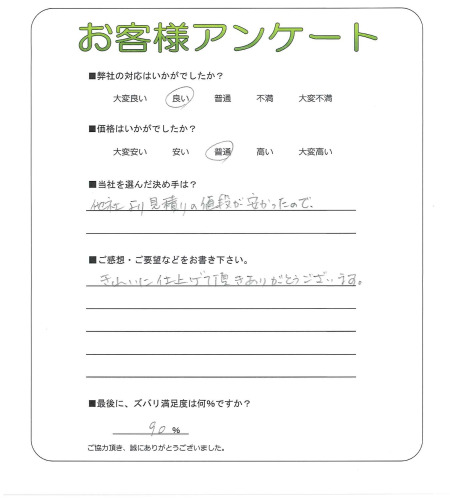 お客様アンケート
■弊社の対応はいかがでしたか？
大変良い 良い 普通 不満 大変不満
■価格はいかがでしたか？
大変安い 安い 普通 高い 大変高い
■当社を選んだ決め手は？
他社より見積りの値段が安かったので、
■ご感想・ご要望などをお書き下さい。
きれいに仕上げて頂きありがとうございます。
■最後に、ズバリ満足度は何%ですか？
90 %
ご協力頂き、誠にありがとうございました。